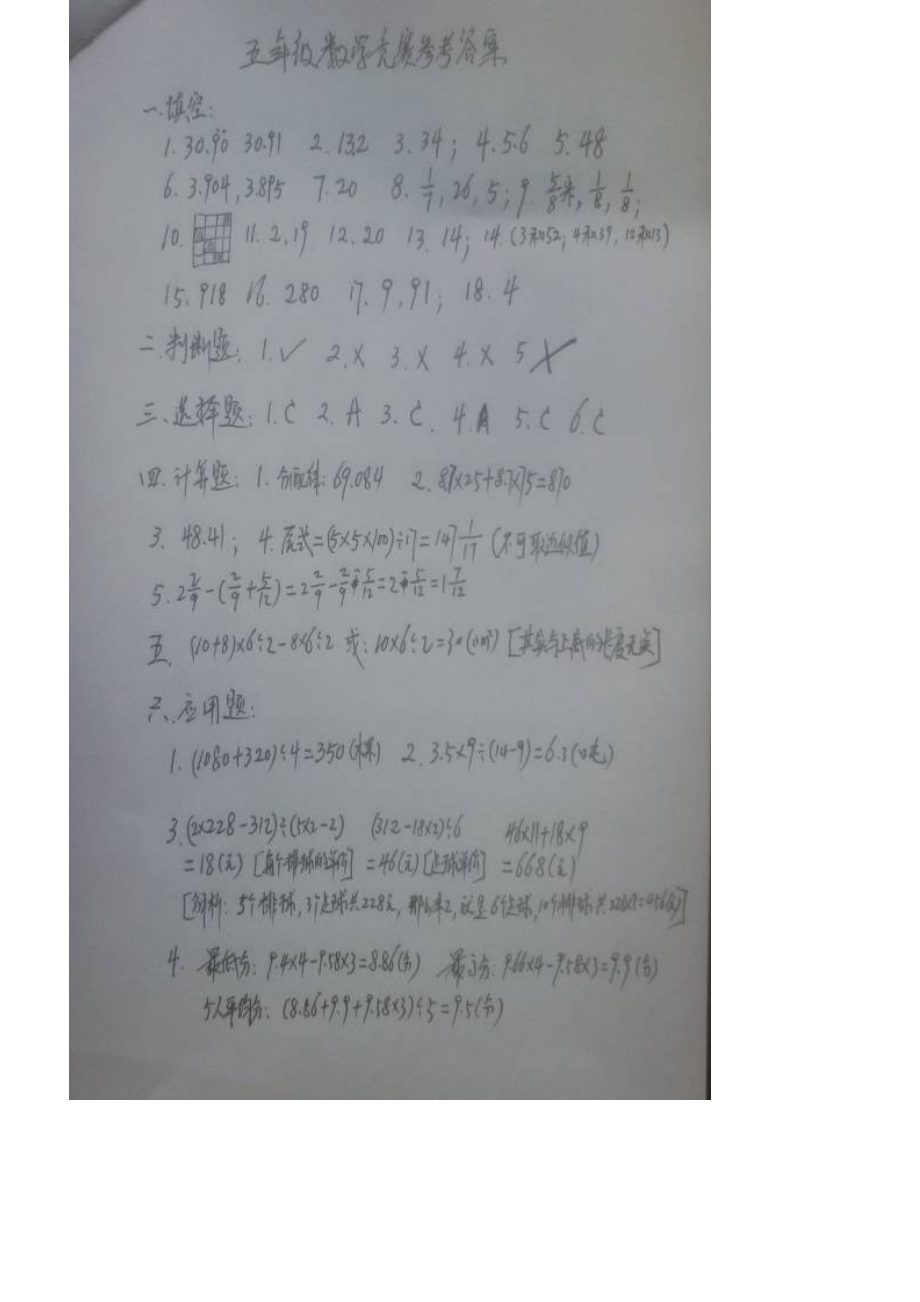 五年级数学竞赛参考答案
一.填空:
1.30.9̇0̇ 30.91 2.132 3.34; 4.5.6 5.48
6.3.904,3.895 7.20 8.1/7,26,5;9.5/8米,1/8,1/8;
10. 11.2,19 12.20 13.14; 14.(3和52;4和39,12和13)
15.918 16.280 17.9,91; 18.4
二.判断题:1.✓ 2.× 3.× 4.× 5×
三、选择题:1.C 2.A 3.C. 4.A 5.C 6.C
四.计算题:1.分配律:69.084 2.8.7×25+8.7×75=870
3.48.41; 4.原式=(5×5×100)÷17=147 1/17 (不可取近似值)
5.2 2/9-(2/9+5/12)=2 2/9-2/9-5/12=2-5/12=1 7/12
五、(10+8)×6÷2-8×6÷2 或:10×6÷2=30(cm²)[其实与上底的长度无关]
六、应用题:
1.(1080+320)÷4=350(棵) 2.3.5×9÷(14-9)=6.3(吨)
3.(2×228-312)÷(5×2-2) (312-18×2)÷6 46×11+18×9
=18(元)[每个排球的单价] =46(元)[足球单价] =668(元)
[分析:5个排球,3个足球共228元,那么乘2,就是6个足球,10个排球共228×2=456(元)]
4.最低分:9.4×4-9.58×3=8.86(分) 最高分:9.66×4-9.58×3=9.9(分)
5人平均分:(8.86+9.9+9.58×3)÷5=9.5(分)